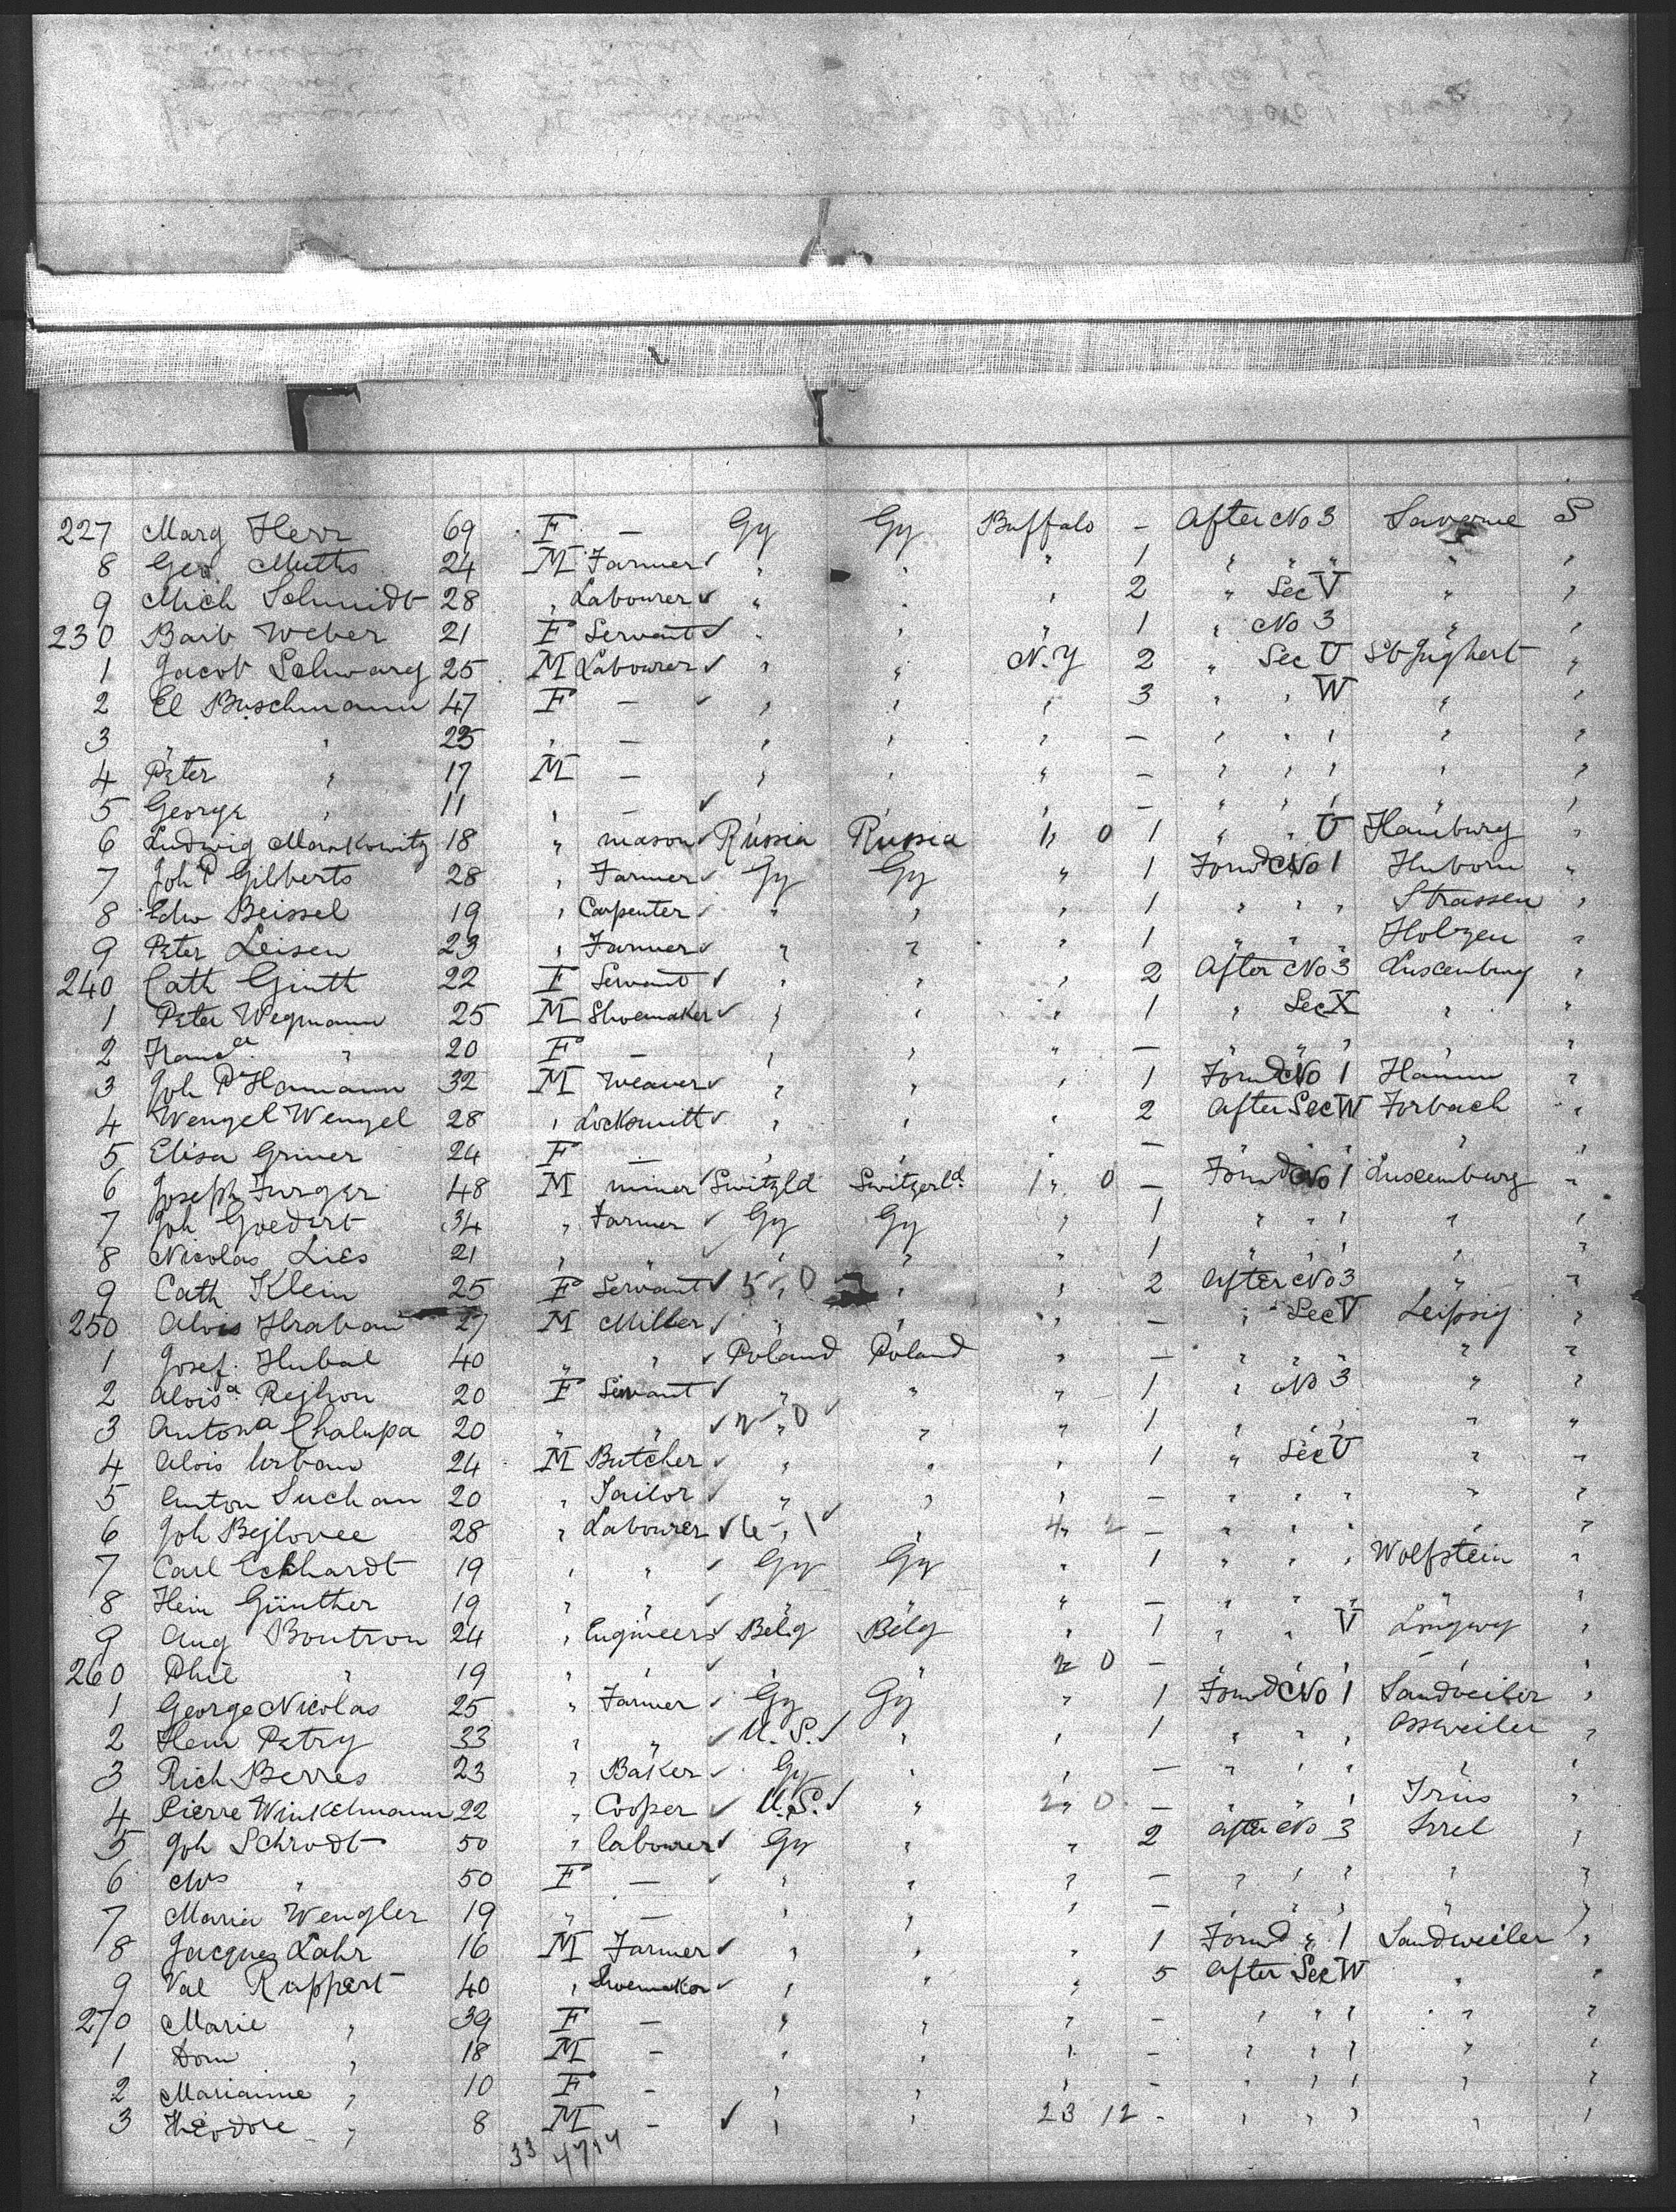 227 Marg Herr 69 F — Gy Gy Buffalo — After No 3 Saverne S
8 Geo. Muths 24 M Farmer ✓ " " 1 " " " " "
9 Mich Schmidt 28 " Labourer ✓ " " " 2 " Sec V " "
230 Barb Weber 21 F Servant ✓ " " " 1 " No 3 " "
1 Jacob Schwarz 25 M Labourer ✓ " " N.Y 2 " Sec U St Jnghert "
2 El Buschmann 47 F — ✓ " " " 3 " " W " "
3 " " 25 " — " " " — " " " " "
4 Peter " 17 M — " " " — " " " " "
5 George " 11 " — ✓ " " " — " " " " "
6 Ludwig Markowitz 18 " mason ✓ Russia Russia " 0 1 " " U Hamburg "
7 Joh P Gilberts 28 " Farmer ✓ Gy Gy " 1 Forwd No 1 "
8 Edw Beissel 19 " Carpenter ✓ " " " 1 " " " Strassen "
9 Peter Leisen 23 " Farmer ✓ " " " 1 " " " Holzen "
240 Cath Ginth 22 F Servant ✓ " " " 2 After No 3 Luxemburg "
1 Peter Wegmann 25 M Shoemaker ✓ " " " 1 " Sec X " "
2 " 20 F — " " " — " " " " "
3 Joh P Hamann 32 M Weaver ✓ " " " 1 Forwd No 1 Hamm "
4 Wenzel Wenzel 28 " Locksmith ✓ " " " 2 After Sec W Forbach "
5 Elisa Griner 24 F — " " " — " " " " "
6 Joseph Furger 48 M miner Switzld Switzerld. 1 " 0 — Forwd No 1 Luxemburg "
7 Joh Goedert 34 " Farmer ✓ Gy Gy " 1 " " " " "
8 Nicolas Lies 21 " " ✓ " " " 1 " " " " "
9 Cath Klein 25 F Servant ✓ 5 " 0 " " 2 After No 3 " "
250 Alois Hraban 27 M Miller ✓ " " " — " Sec V Leipsig "
1 Josef Hubal 40 " " ✓ Poland Poland " — " " " " "
2 Alois a Rejhon 20 F Servant ✓ " " " 1 " No 3 " "
3 Anton a Chalupa 20 " " ✓ " 0 ✓ " " 1 " " " " "
4 Alois Urban 24 M Butcher ✓ " " " 1 " Sec U " "
5 Anton Suchan 20 " Tailor ✓ " " " — " " " " "
6 Joh Bejlovec 28 " Labourer ✓ 6 " 1 ✓ " 4 " 2 — " " " " "
7 Carl Eckhardt 19 " " ✓ Gy Gy " 1 " " " Wolfstein "
8 Hein Günther 19 " " ✓ " " " — " " " " "
9 Aug Boutron 24 " Engineer ✓ Belg Belg " 1 " " V Longwy "
260 Phil " 19 " " ✓ " " 2 0 — " " " " "
1 George Nicolas 25 " Farmer ✓ Gy Gy " 1 Forwd No 1 Sandweiler "
2 Hein Petry 33 " " ✓ U.S. ✓ " " 1 " " " Assweiler "
3 Rich Berres 23 " Baker ✓ Gy " " — " " " " "
4 Pierre Winkelmann 22 " Cooper ✓ U.S. ✓ " 2 " 0 — " " " "
5 Joh Schrodt 50 " labourer ✓ Gy " " 2 After No 3 Irrel "
6 Mrs " 50 F — ✓ " " " — " " " " "
7 Maria Wengler 19 " — " " " — " " " " "
8 Jacques Lahr 16 M Farmer ✓ " " " 1 Forwd " 1 Sandweiler "
9 Val Ruppert 40 " Shoemaker ✓ " " " 5 After Sec W " "
270 Marie " 39 F — " " " — " " " " "
1 Dom " 18 M — " " " — " " " " "
2 Marianne " 10 F — " " " — " " " " "
3 Theodore " 8 M — ✓ " " 23 12 — " " " " "
33